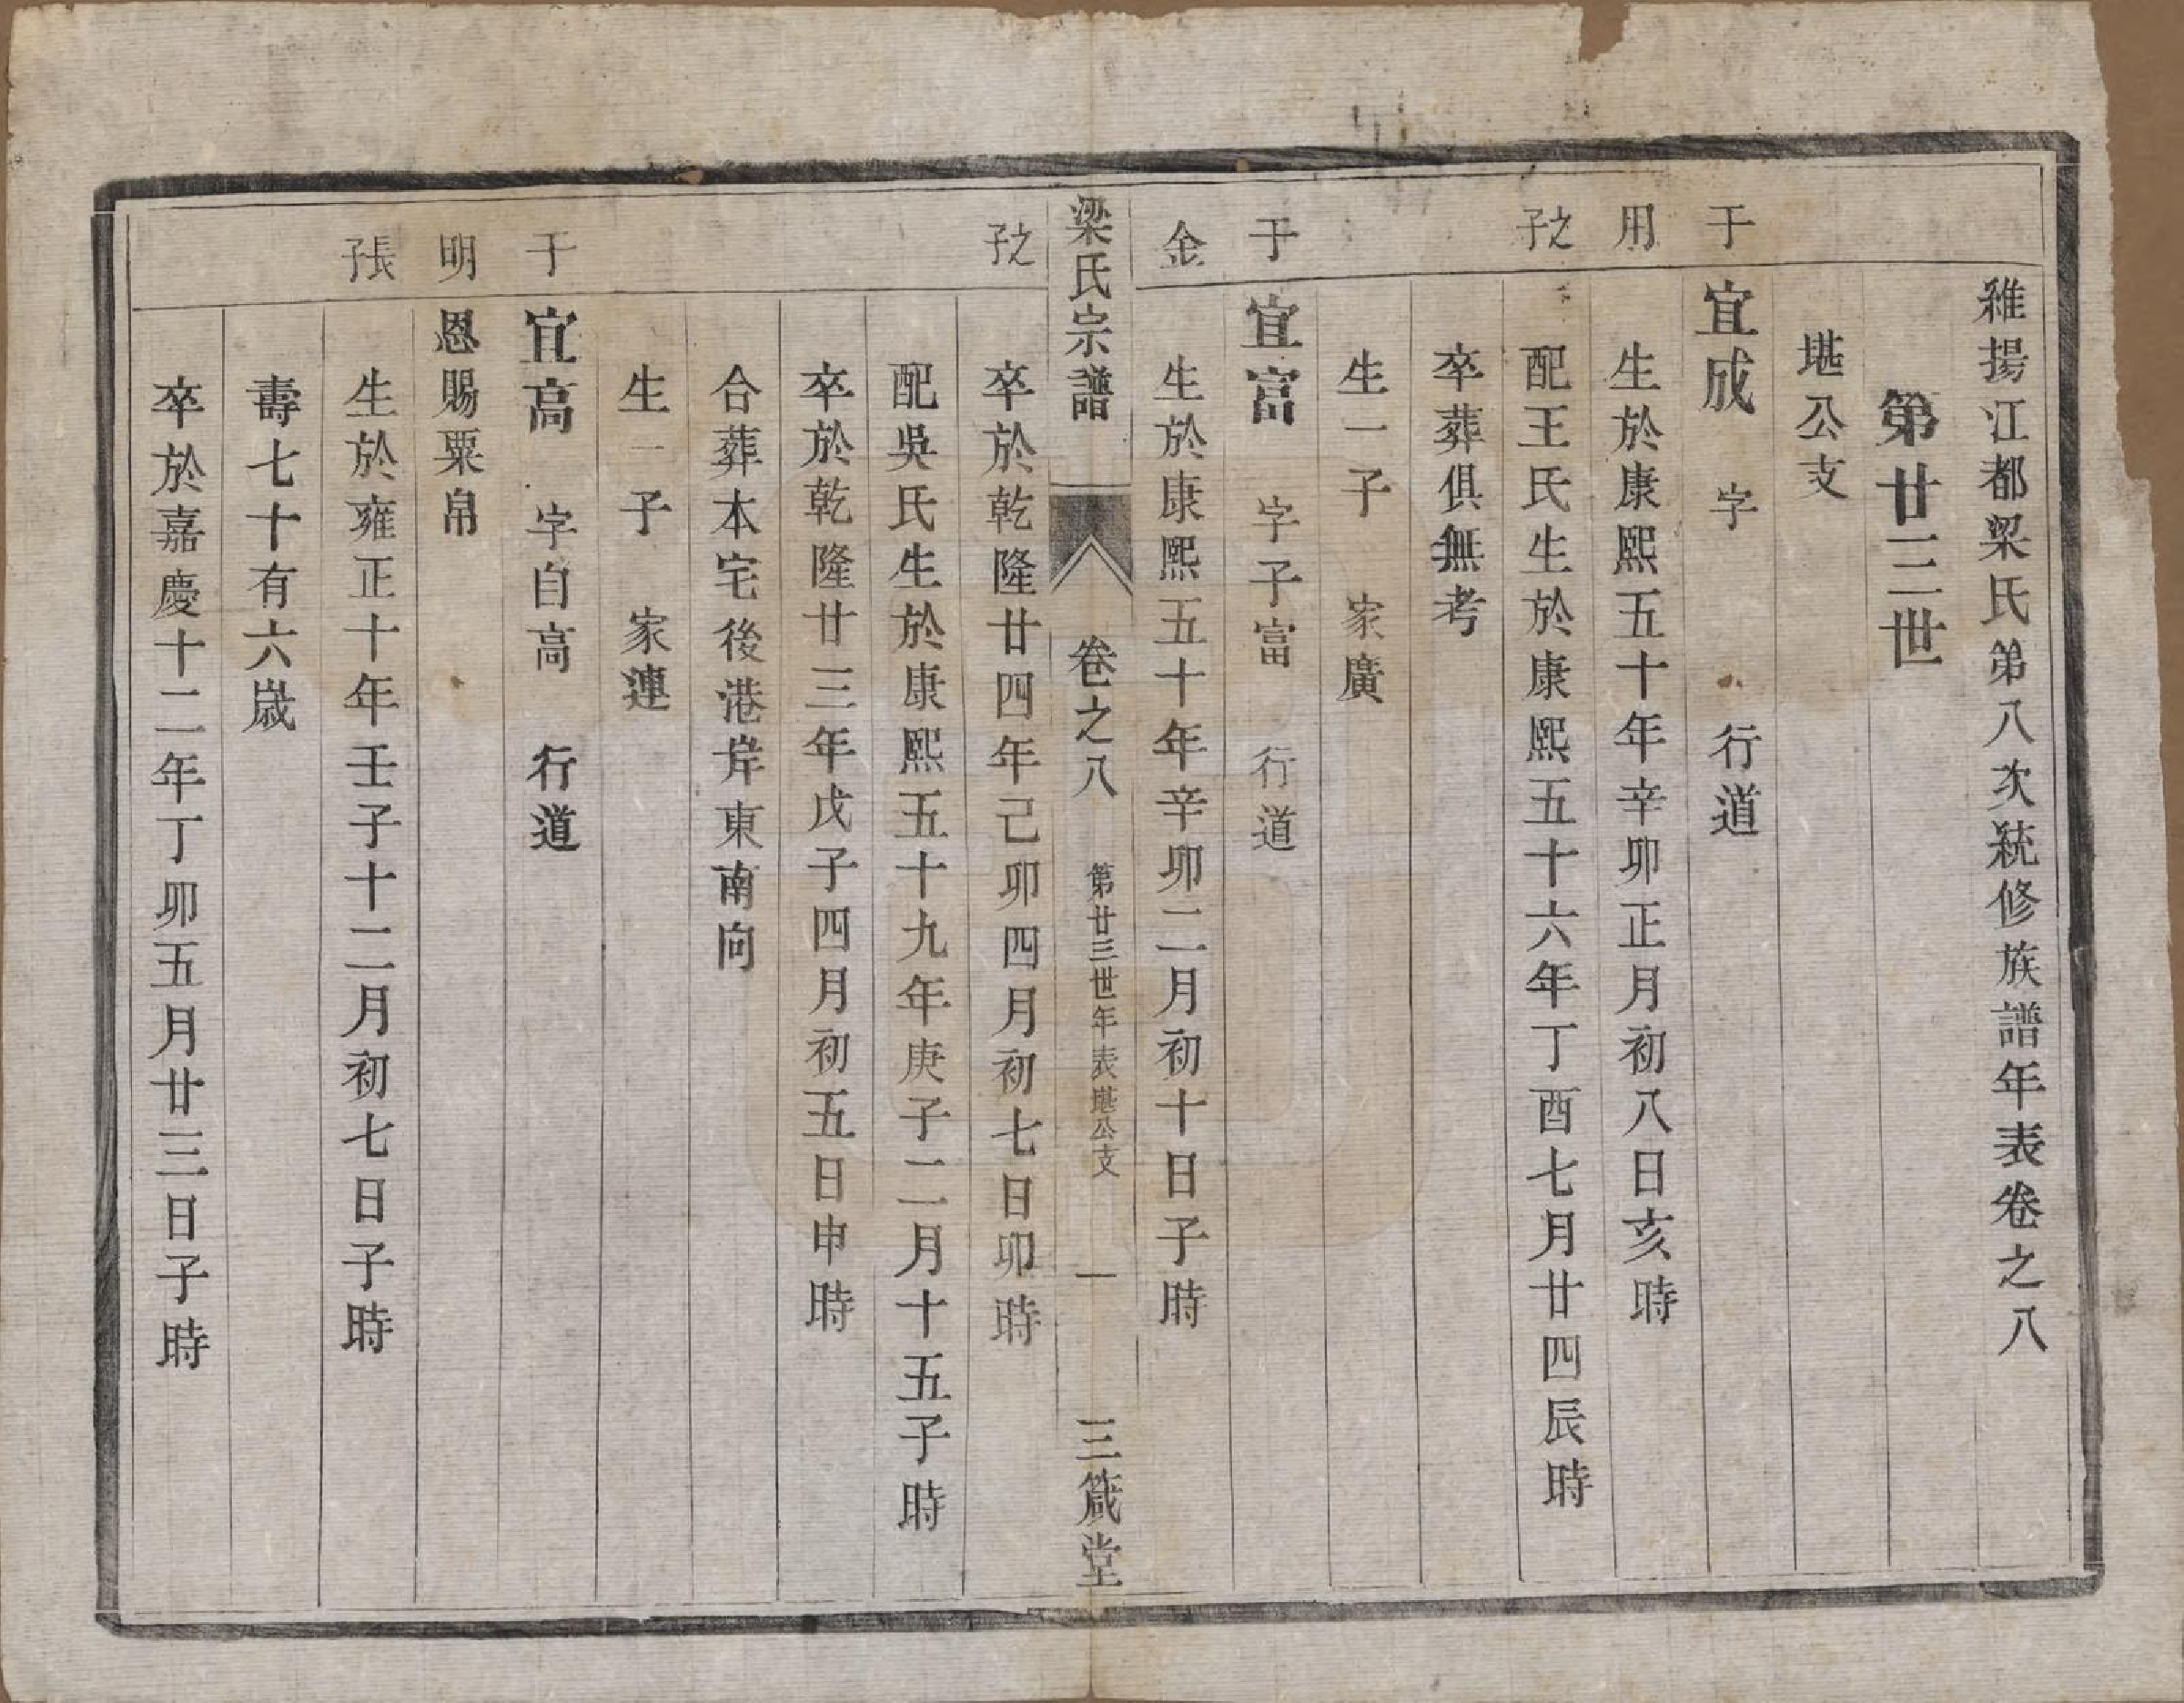 維揚江都梁氏第八次統修族譜年表卷之八
第廿三世
堪公支
于用之子
宜成 字 行道
生於康熙五十年辛卯正月初八日亥時
配王氏生於康熙五十六年丁酉七月廿四辰時
卒葬俱無考
生一子 家廣
于金之子
宜富 字子富 行道
生於康熙五十年辛卯二月初十日子時
梁氏宗譜 卷之八 第廿三世年表堪公支 一 三箴堂
卒於乾隆廿四年己卯四月初七日卯時
配吳氏生於康熙五十九年庚子二月十五子時
卒於乾隆廿三年戊子四月初五日申時
合葬本宅後港岸東南向
生一子 家連
于明長子
宜高 字自高 行道
恩賜粟帛
生於雍正十年壬子十二月初七日子時
壽七十有六歲
卒於嘉慶十二年丁卯五月廿三日子時